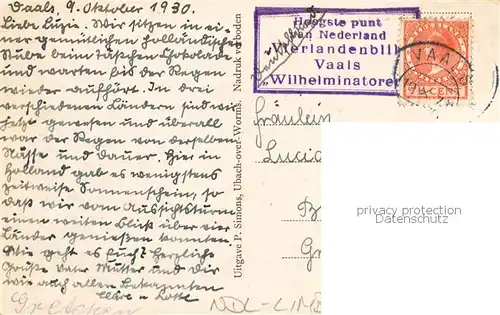 Vaals, 9. Oktober 1930.
Liebe Luzie. Wir sitzen in ei-
ner gemütlichen holländischen
Stube beim Täßchen Schokolade
und warten bis der Regen
wieder aufhört. In drei
verschiedenen Ländern sind wir
jetzt gewesen und überall
war der Regen von derselben
Nässe und Dauer. Hier in
Holland gab es wenigstens
zeitweise Sonnenschein, so
daß wir vom Aussichtsturm
einen weiten Blick über vier
Länder genießen konnten.
Wie geht es Euch? Herzliche
Grüße Deiner Mutter und Dir
wie auch allen Bekannten
u. Lotte
Gretchen
Uitgave P. Simons, Ubach-over-Worms. Nadruk verboden
Hoogste punt
van Nederland
„Vierlandenblik"
Vaals
„Wilhelminatoren"
VAALS
CENT
Fräulein
Lucia
B
Gr
privacy protection
Datenschutz
NDL-LIMB